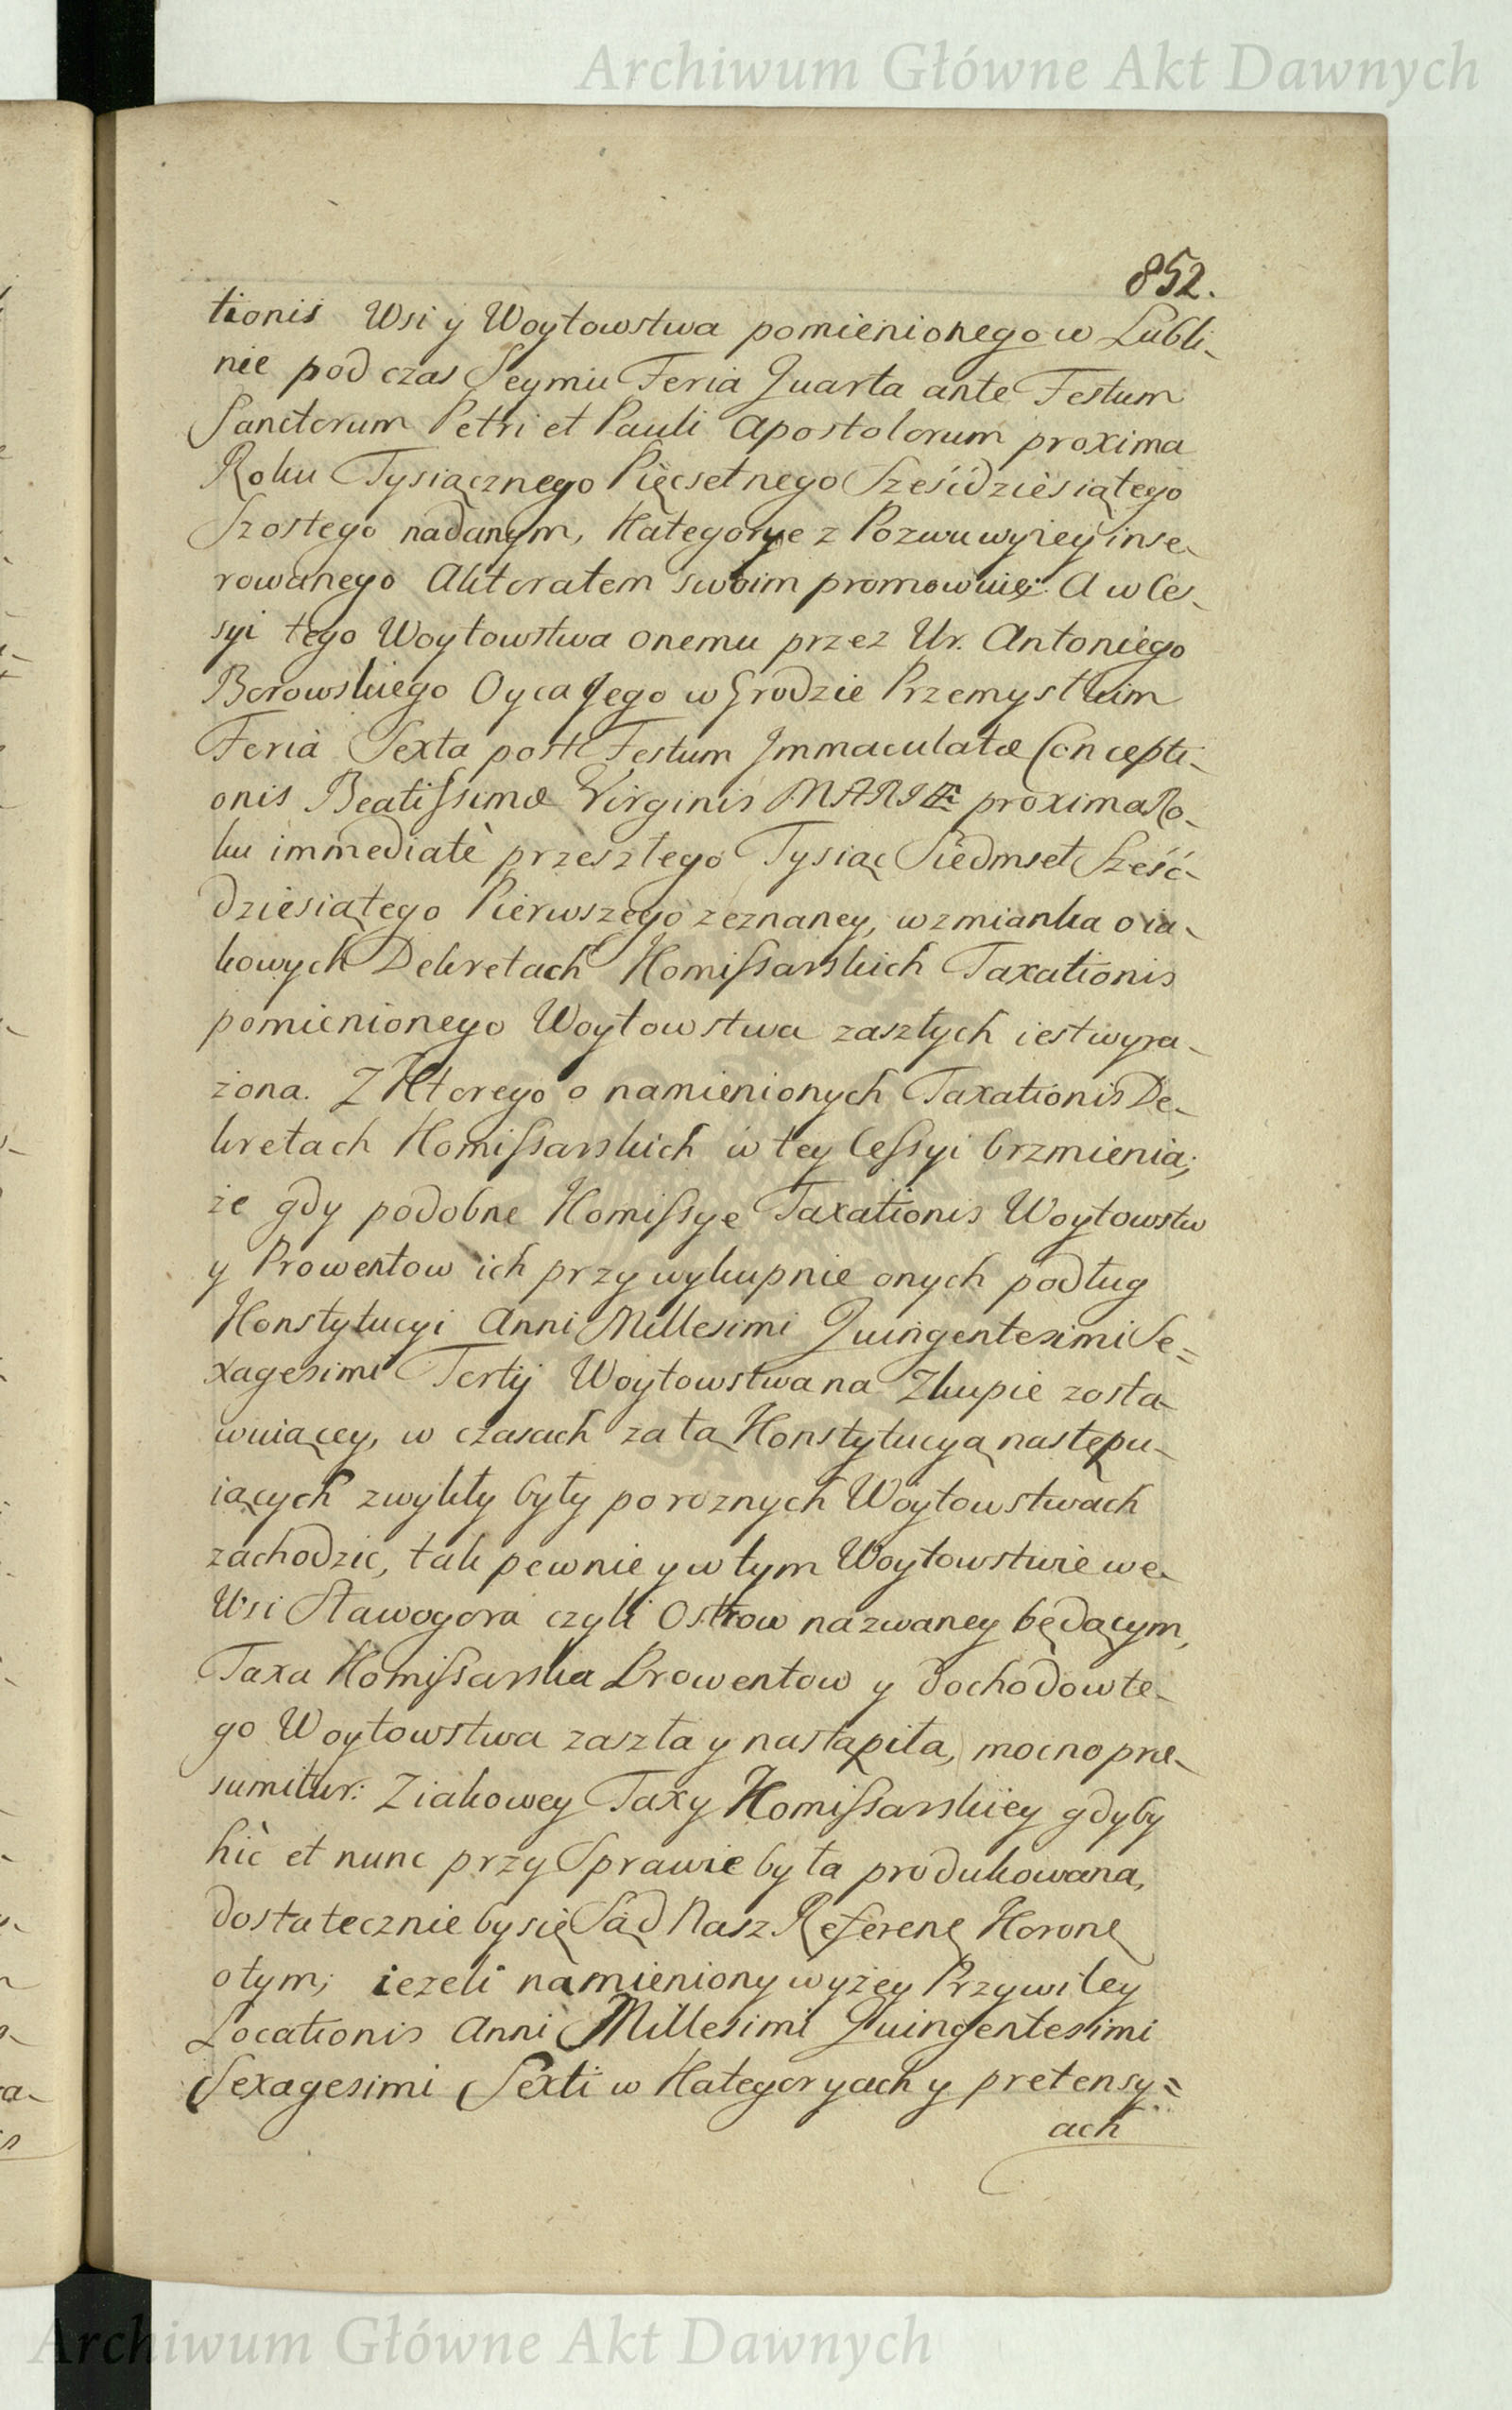 Archiwum Główne Akt Dawnych
852.
tionis Wsi y Woytowstwa pomienionego w Lubli-
nie podczas Seymu Feria Quarta ante Festum
Sanctorum Petri et Pauli Apostolorum proxima
Roku Tysiącznego Pięcsetnego Sześćdziesiątego
Szostego nadanym, Kategorye z Pozwu wyżey inse-
rowanego Aktoratem swoim promowuię: A w Ces-
syi tego Woytowstwa onemu przez Ur. Antoniego
Borowskiego Oyca Jego w Grodzie Przemyslkim
Feria Sexta post Festum Immaculatæ Concepti-
onis Beatissimæ Virginis MARIÆ proxima Ro-
ku immediatè przeszłego Tysiąc Siedmset Sześć-
dziesiątego Pierwszego zeznaney, wzmianka o ia-
kowych Dekretach Komissarskich Taxationis
pomienionego Woytowstwa zaszłych iest wyra-
żona. Z Ktorego o namienionych Taxationis De-
kretach Komissarskich w tey Cessyi brzmienia;
że gdy podobne Komissye Taxationis Woytowstw
y Prowentow ich przy wykupnie onych podług
Konstytucyi Anni Millesimi Quingentesimi Se=
xagesimi Tertij Woytowstwa na Zkupie zosta-
wuiącey, w czasach za tą Konstytucyą następu-
iących zwykły były po roznych Woytowstwach
zachodzic, tak pewnie y w tym Woytowstwie we
Wsi Stawogora czyli Ostrow nazwaney będącym,
Taxa Komissarska Prowentow y dochodow te-
go Woytowstwa zaszła y nastąpiła, mocno præ-
sumitur: Z iakowey Taxy Komissarskiey gdyby
hic et nunc przy Sprawie była produkowana,
dostatecznie by się Sąd Nasz Referenc Koronc
o tym; ieżeli namieniony wyżey Przywiley
Locationis Anni Millesimi Quingentesimi
Sexagesimi Sexti w Kategoryach y pretensy=
ach
Archiwum Główne Akt Dawnych